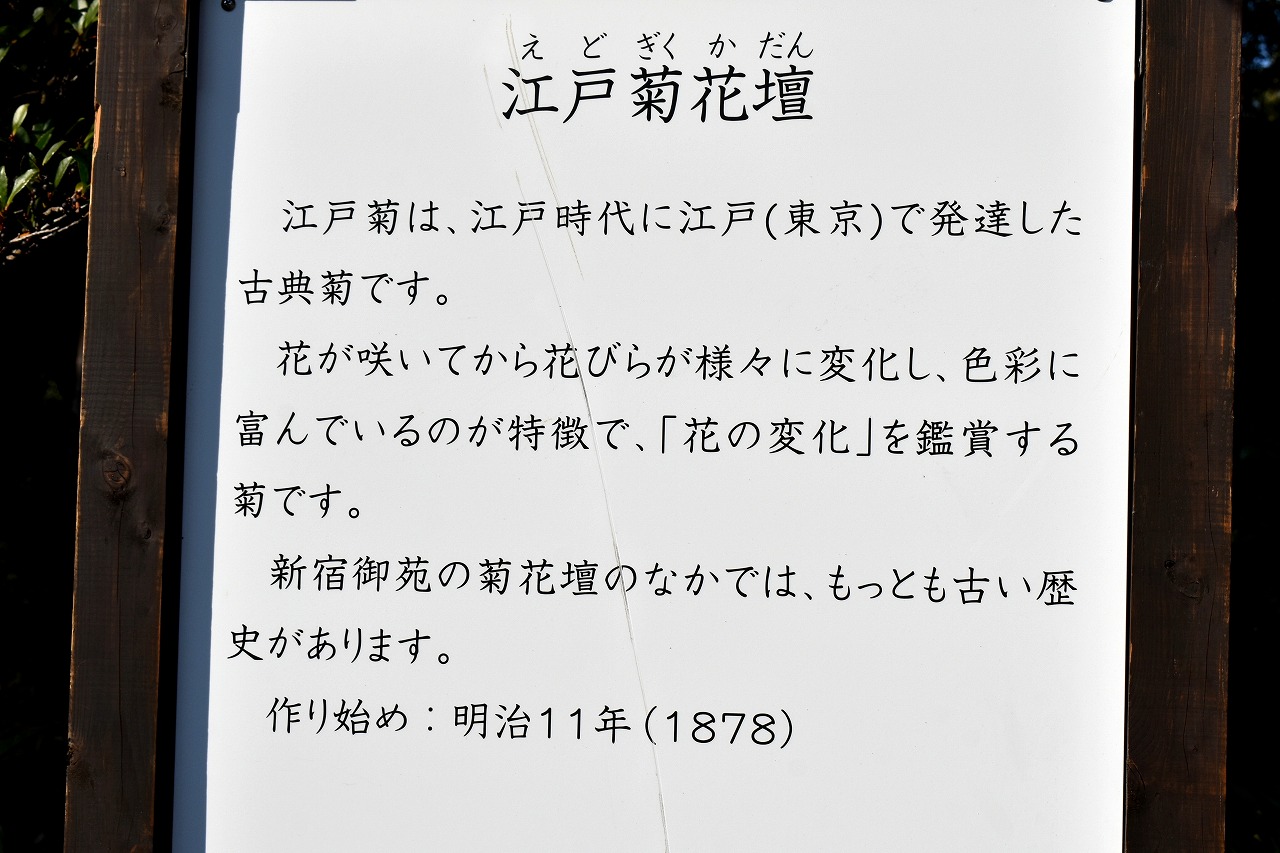 えどぎくかだん
江戸菊花壇
江戸菊は、江戸時代に江戸(東京)で発達した
古典菊です。
花が咲いてから花びらが様々に変化し、色彩に
富んでいるのが特徴で、「花の変化」を鑑賞する
菊です。
新宿御苑の菊花壇のなかでは、もっとも古い歴
史があります。
作り始め：明治11年(1878)